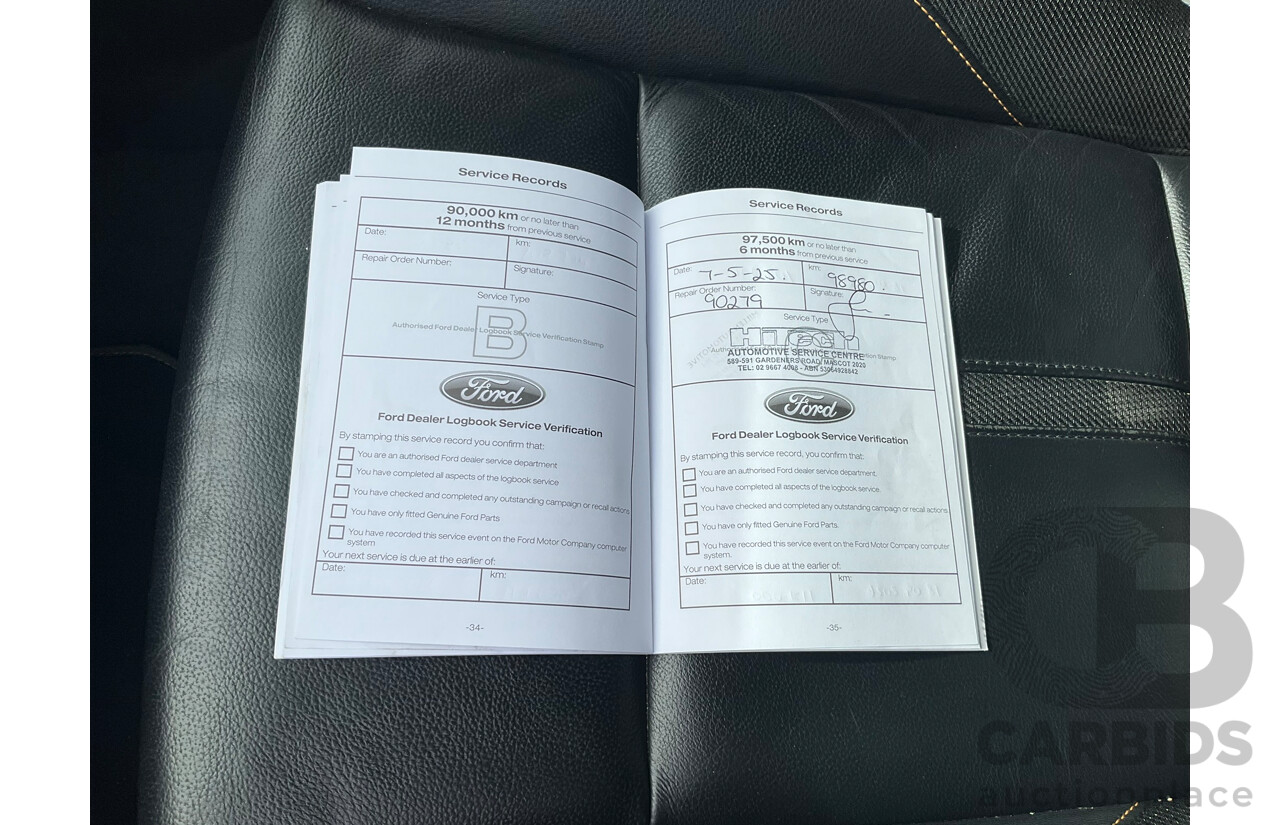 Service Records
90,000 km or no later than
12 months from previous service
Date:
km:
Repair Order Number:
Signature:
Service Type
B
Authorised Ford Dealer Logbook Service Verification Stamp
Ford
Ford Dealer Logbook Service Verification
By stamping this service record you confirm that:
You are an authorised Ford dealer service department
You have completed all aspects of the logbook service
You have checked and completed any outstanding campaign or recall actions
You have only fitted Genuine Ford Parts
You have recorded this service event on the Ford Motor Company computer
system
Your next service is due at the earlier of:
Date:
km:
-34-
Service Records
97,500 km or no later than
6 months from previous service
Date: 7-5-25.
km: 98980.
Repair Order Number:
90279
Signature:
Service Type
HITECH
AUTOMOTIVE SERVICE CENTRE
589-591 GARDENERS ROAD MASCOT 2020
TEL: 02 9667 4008 - ABN 53064928842
Ford
Ford Dealer Logbook Service Verification
By stamping this service record, you confirm that:
You are an authorised Ford dealer service department.
You have completed all aspects of the logbook service.
You have checked and completed any outstanding campaign or recall actions.
You have only fitted Genuine Ford Parts.
You have recorded this service event on the Ford Motor Company computer
system.
Your next service is due at the earlier of:
Date:
km:
-35-
CB
CARBIDS
auctionplace